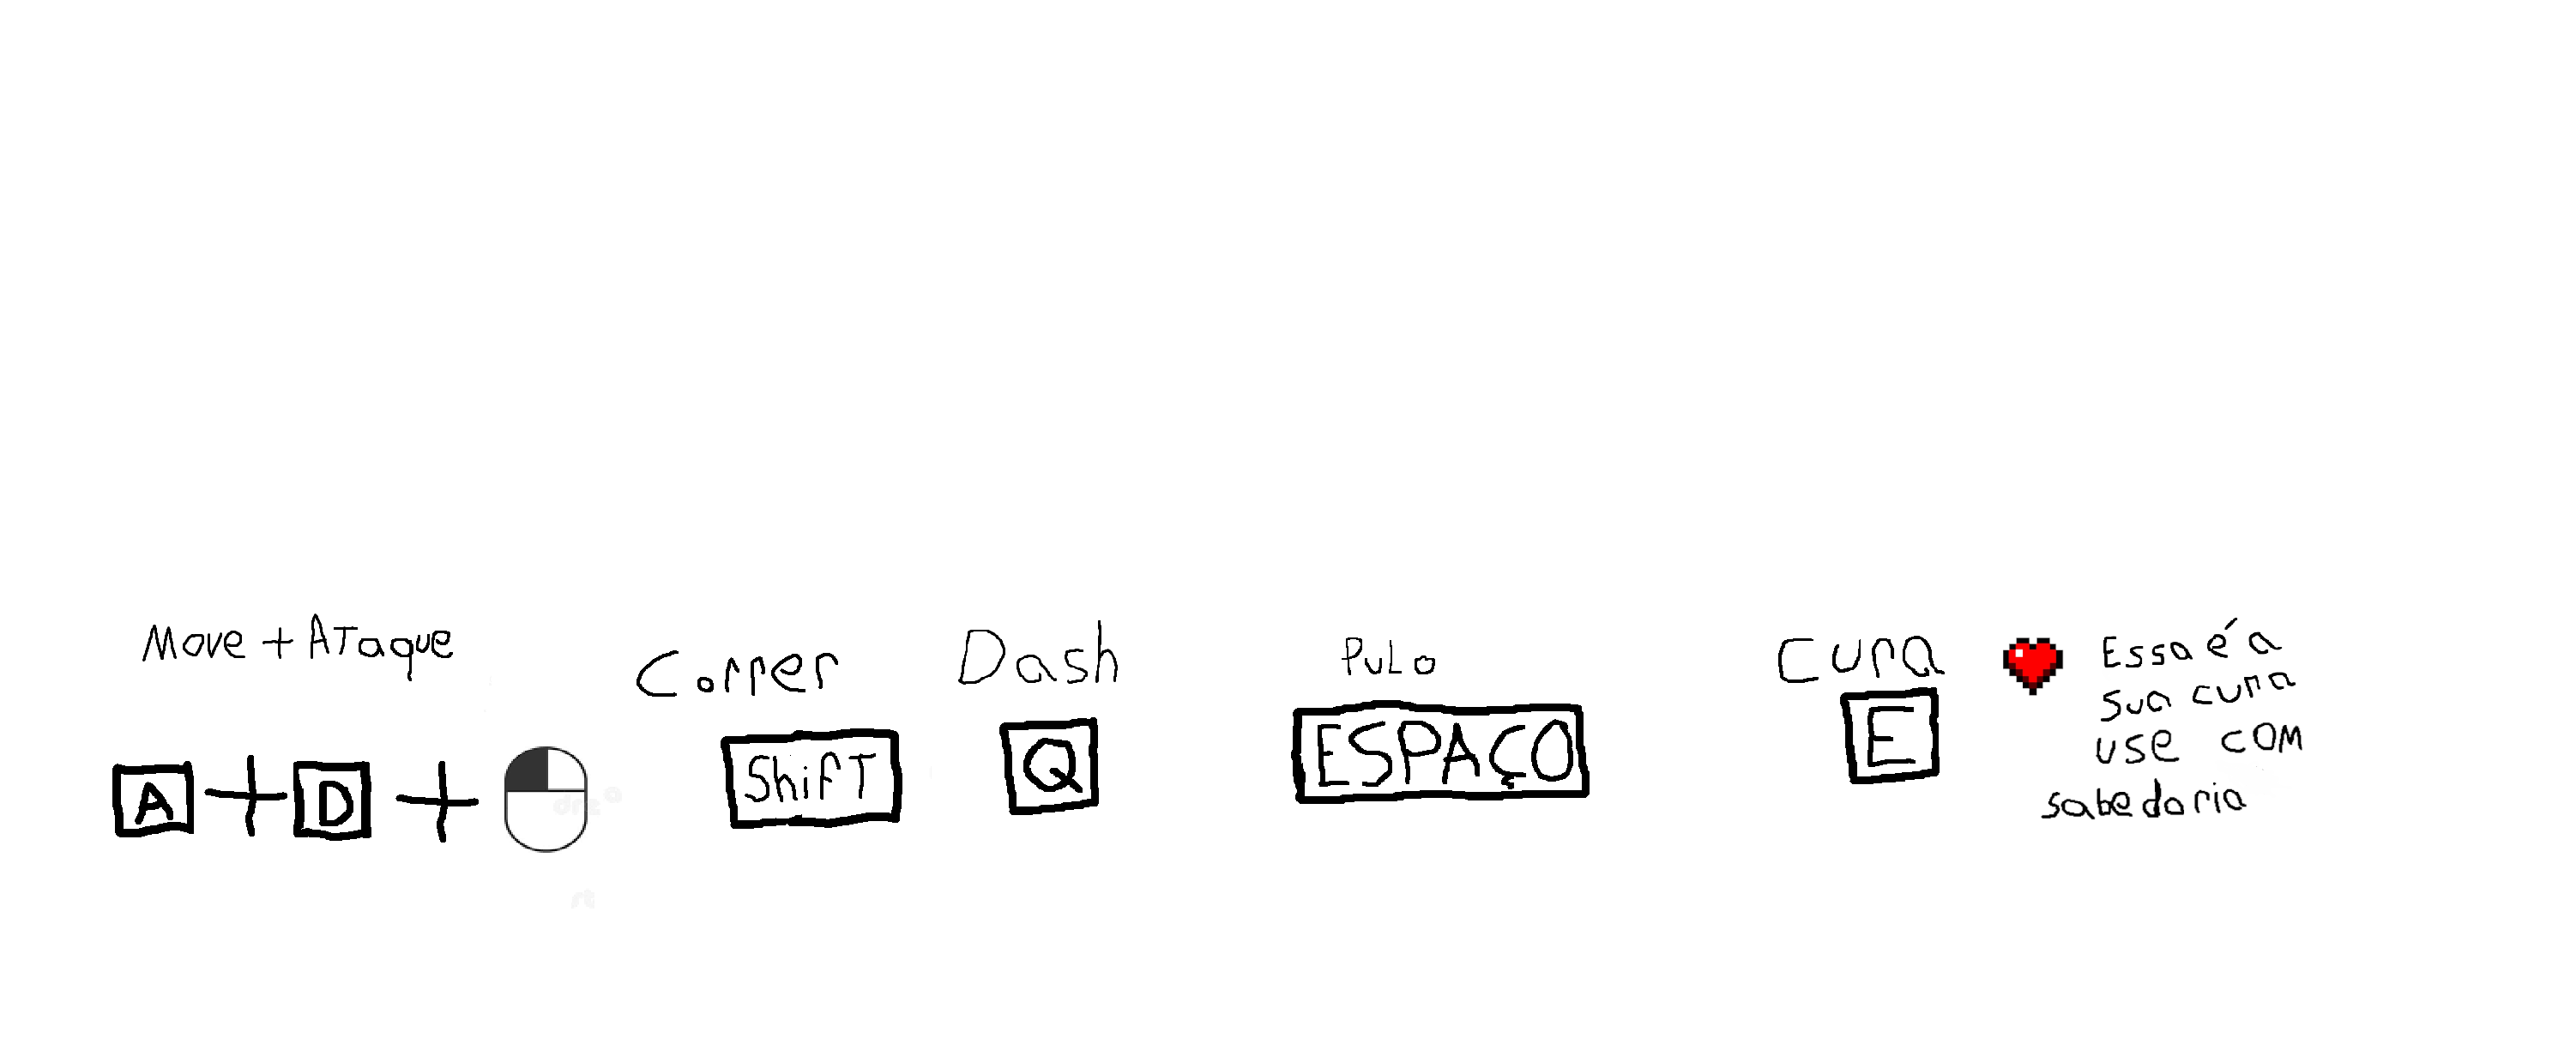 Move + ATaque
A + D +
Correr
ShifT
Dash
Q
PuLo
ESPAÇO
Cura
E
Essa é a
sua cura
use com
sabedoria